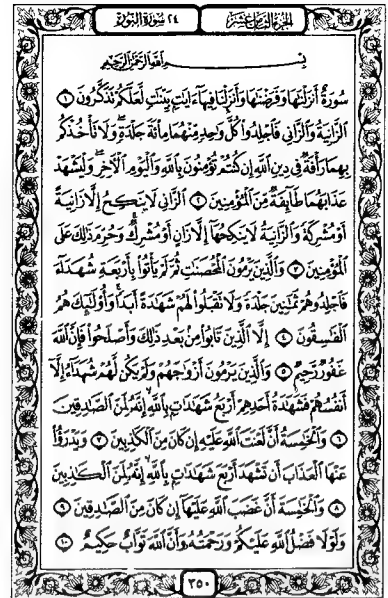 الجزء الثامن عشر
٢٤ سورة النور
بسم الله الرحمن الرحيم
سُورَةٌ أَنزَلْنَاهَا وَفَرَضْنَاهَا وَأَنزَلْنَا فِيهَا ءَايَاتٍ بَيِّنَاتٍ لَّعَلَّكُمْ تَذَكَّرُونَ ١
الزَّانِيَةُ وَالزَّانِي فَاجْلِدُوا كُلَّ وَاحِدٍ مِّنْهُمَا مِائَةَ جَلْدَةٍ وَلَا تَأْخُذْكُم
بِهِمَا رَأْفَةٌ فِي دِينِ اللَّهِ إِن كُنتُمْ تُؤْمِنُونَ بِاللَّهِ وَالْيَوْمِ الْآخِرِ وَلْيَشْهَدْ
عَذَابَهُمَا طَائِفَةٌ مِّنَ الْمُؤْمِنِينَ ٢ الزَّانِي لَا يَنكِحُ إِلَّا زَانِيَةً
أَوْ مُشْرِكَةً وَالزَّانِيَةُ لَا يَنكِحُهَا إِلَّا زَانٍ أَوْ مُشْرِكٌ وَحُرِّمَ ذَٰلِكَ عَلَى
الْمُؤْمِنِينَ ٣ وَالَّذِينَ يَرْمُونَ الْمُحْصَنَاتِ ثُمَّ لَمْ يَأْتُوا بِأَرْبَعَةِ شُهَدَاءَ
فَاجْلِدُوهُمْ ثَمَانِينَ جَلْدَةً وَلَا تَقْبَلُوا لَهُمْ شَهَادَةً أَبَدًا وَأُولَٰئِكَ هُمُ
الْفَاسِقُونَ ٤ إِلَّا الَّذِينَ تَابُوا مِن بَعْدِ ذَٰلِكَ وَأَصْلَحُوا فَإِنَّ اللَّهَ
غَفُورٌ رَّحِيمٌ ٥ وَالَّذِينَ يَرْمُونَ أَزْوَاجَهُمْ وَلَمْ يَكُن لَّهُمْ شُهَدَاءُ إِلَّا
أَنفُسُهُمْ فَشَهَادَةُ أَحَدِهِمْ أَرْبَعُ شَهَادَاتٍ بِاللَّهِ إِنَّهُ لَمِنَ الصَّادِقِينَ
٦ وَالْخَامِسَةُ أَنَّ لَعْنَتَ اللَّهِ عَلَيْهِ إِن كَانَ مِنَ الْكَاذِبِينَ ٧ وَيَدْرَؤُا
عَنْهَا الْعَذَابَ أَن تَشْهَدَ أَرْبَعَ شَهَادَاتٍ بِاللَّهِ إِنَّهُ لَمِنَ الْكَاذِبِينَ
٨ وَالْخَامِسَةَ أَنَّ غَضَبَ اللَّهِ عَلَيْهَا إِن كَانَ مِنَ الصَّادِقِينَ ٩
وَلَوْلَا فَضْلُ اللَّهِ عَلَيْكُمْ وَرَحْمَتُهُ وَأَنَّ اللَّهَ تَوَّابٌ حَكِيمٌ ١٠
٣٥٠